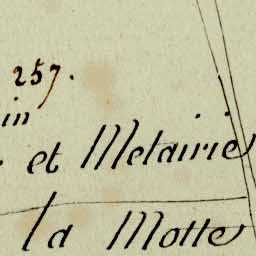 257.
in
et Metairie
la Motte